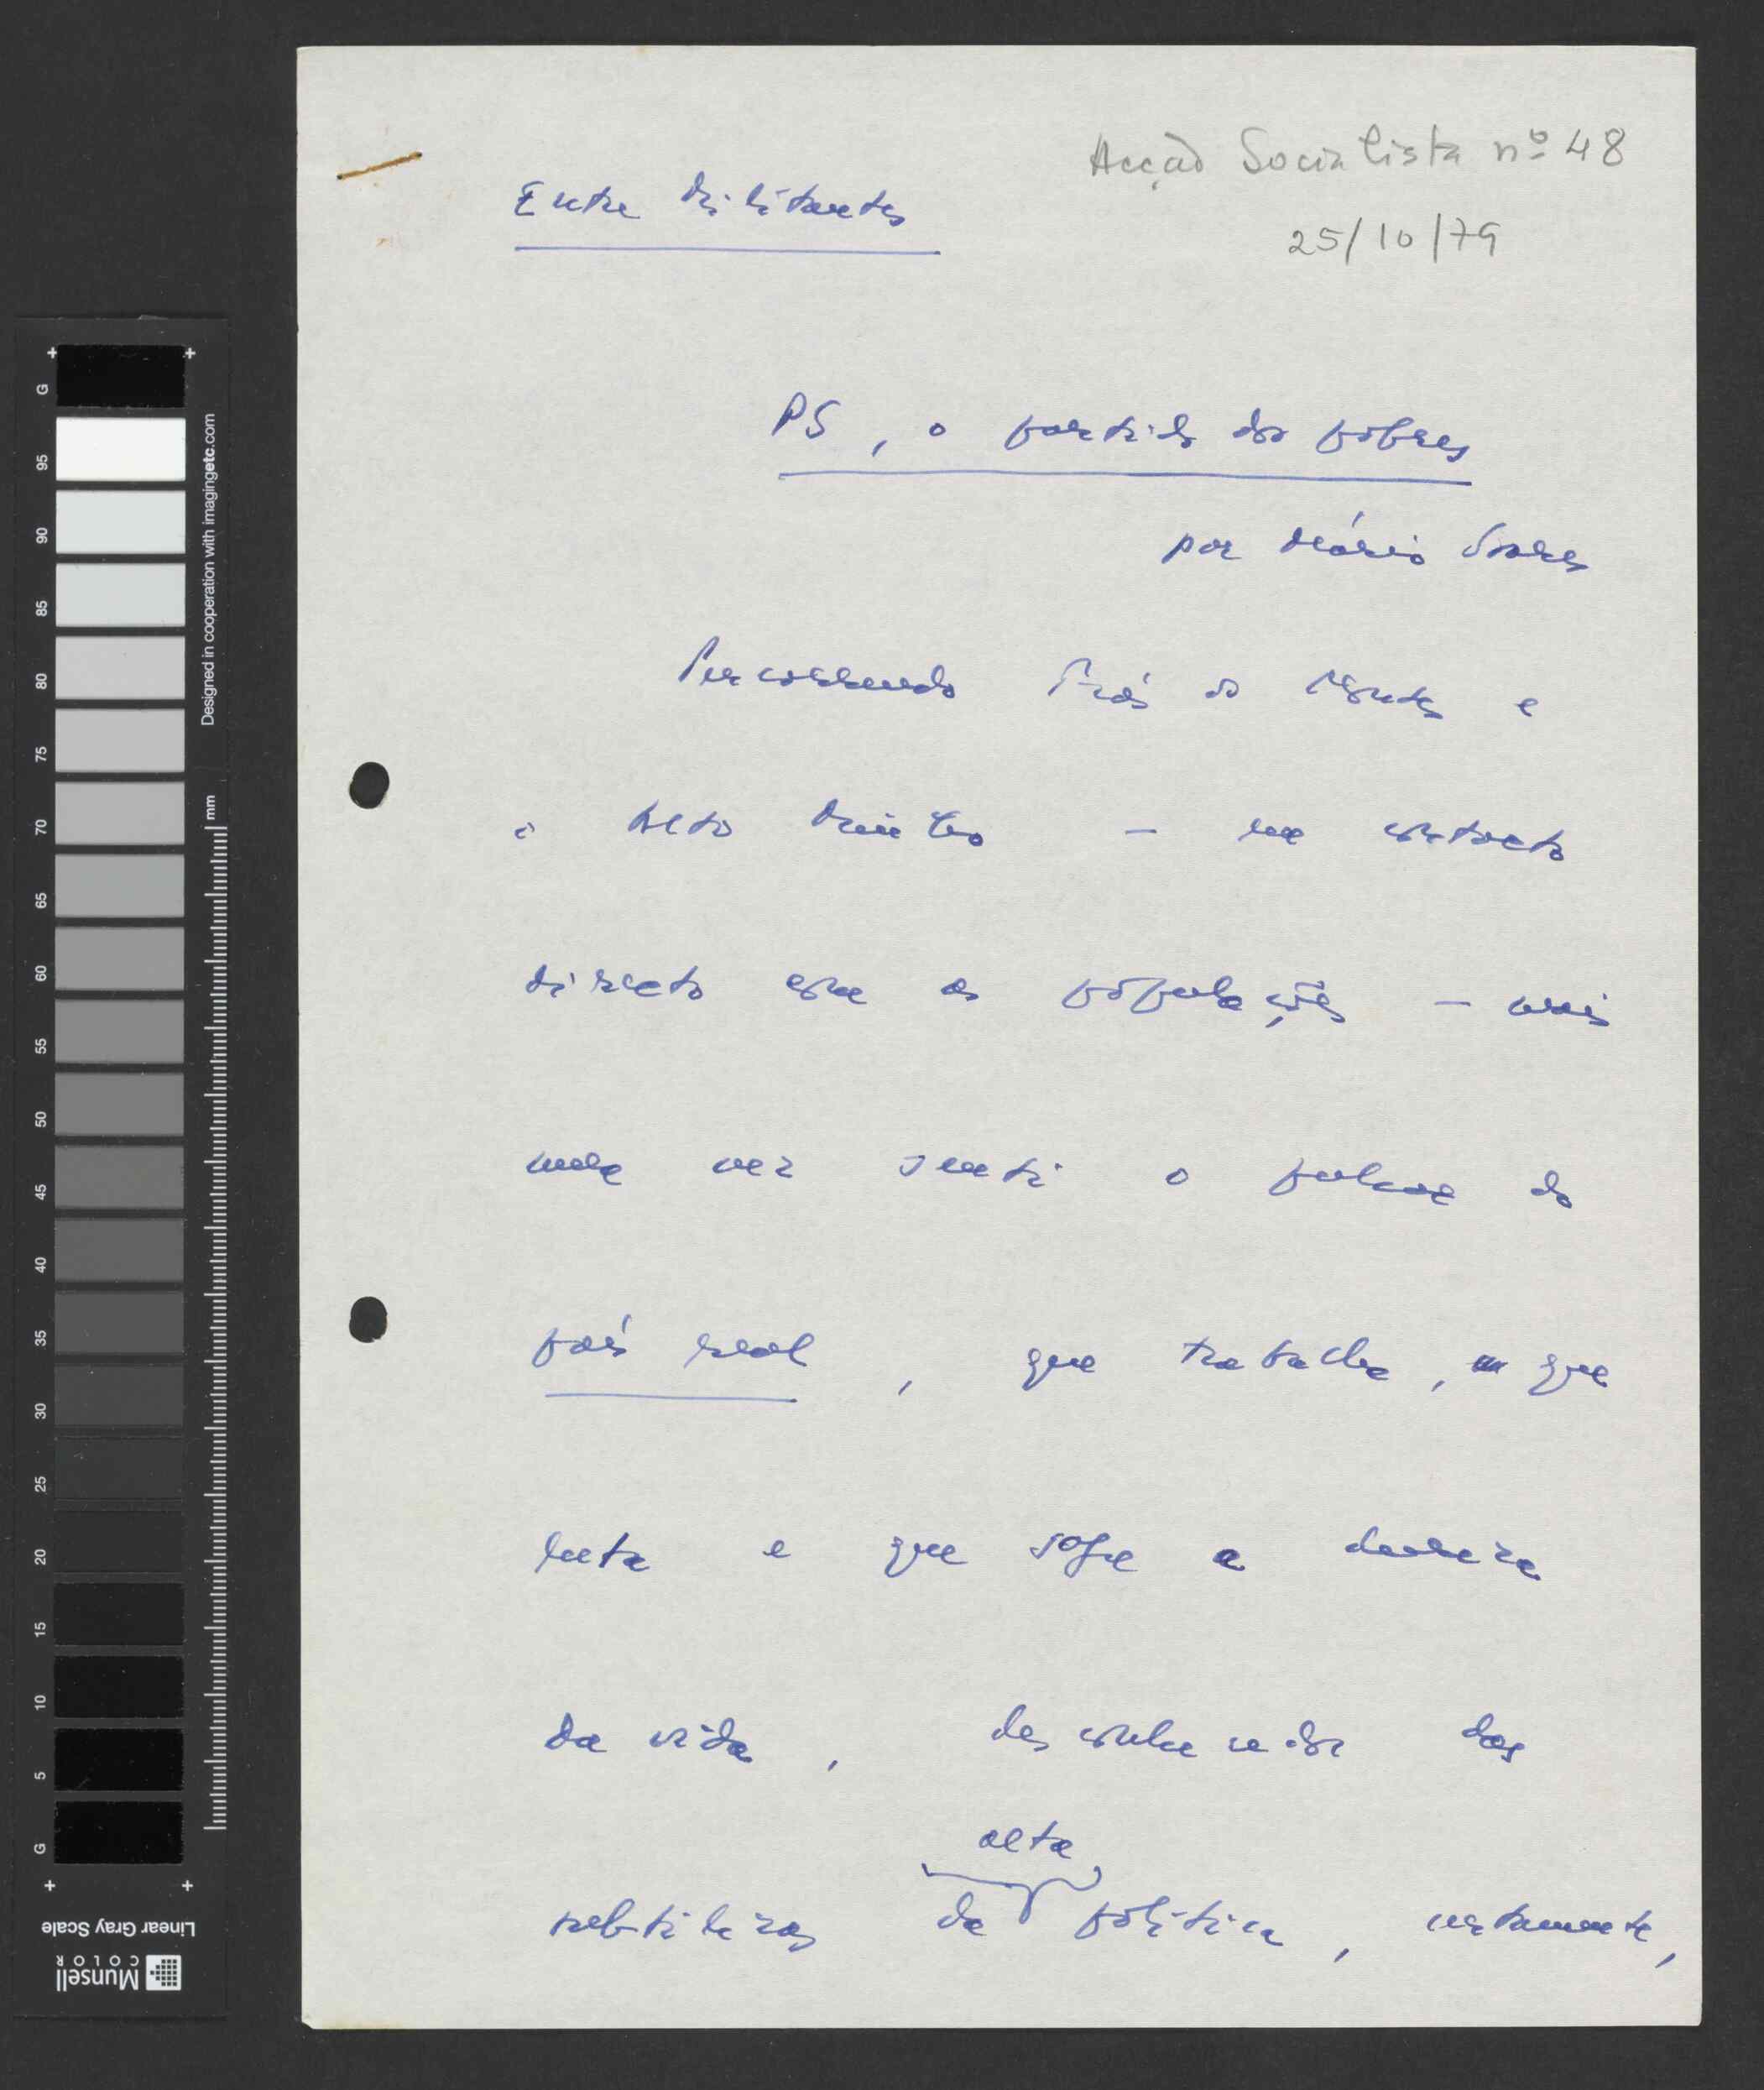 Acção Socialista nº 48
25/10/79
Entre Militantes
PS, o partido dos pobres
por Mário Soares
Percorrendo Trás os Montes e
o Alto Minho - em contacto
directo com as populações - mais
uma vez senti o pulsar do
país real, que trabalha, que
luta e que sofre a dureza
da vida, desconhecedor das
subtilezas da alta política, certamente,
G
95
90
85
80
75
70
65
60
55
50
45
40
35
30
25
20
15
10
5
G
mm
Designed in cooperation with imagingetc.com
Linear Gray Scale
Munsell
COLOR